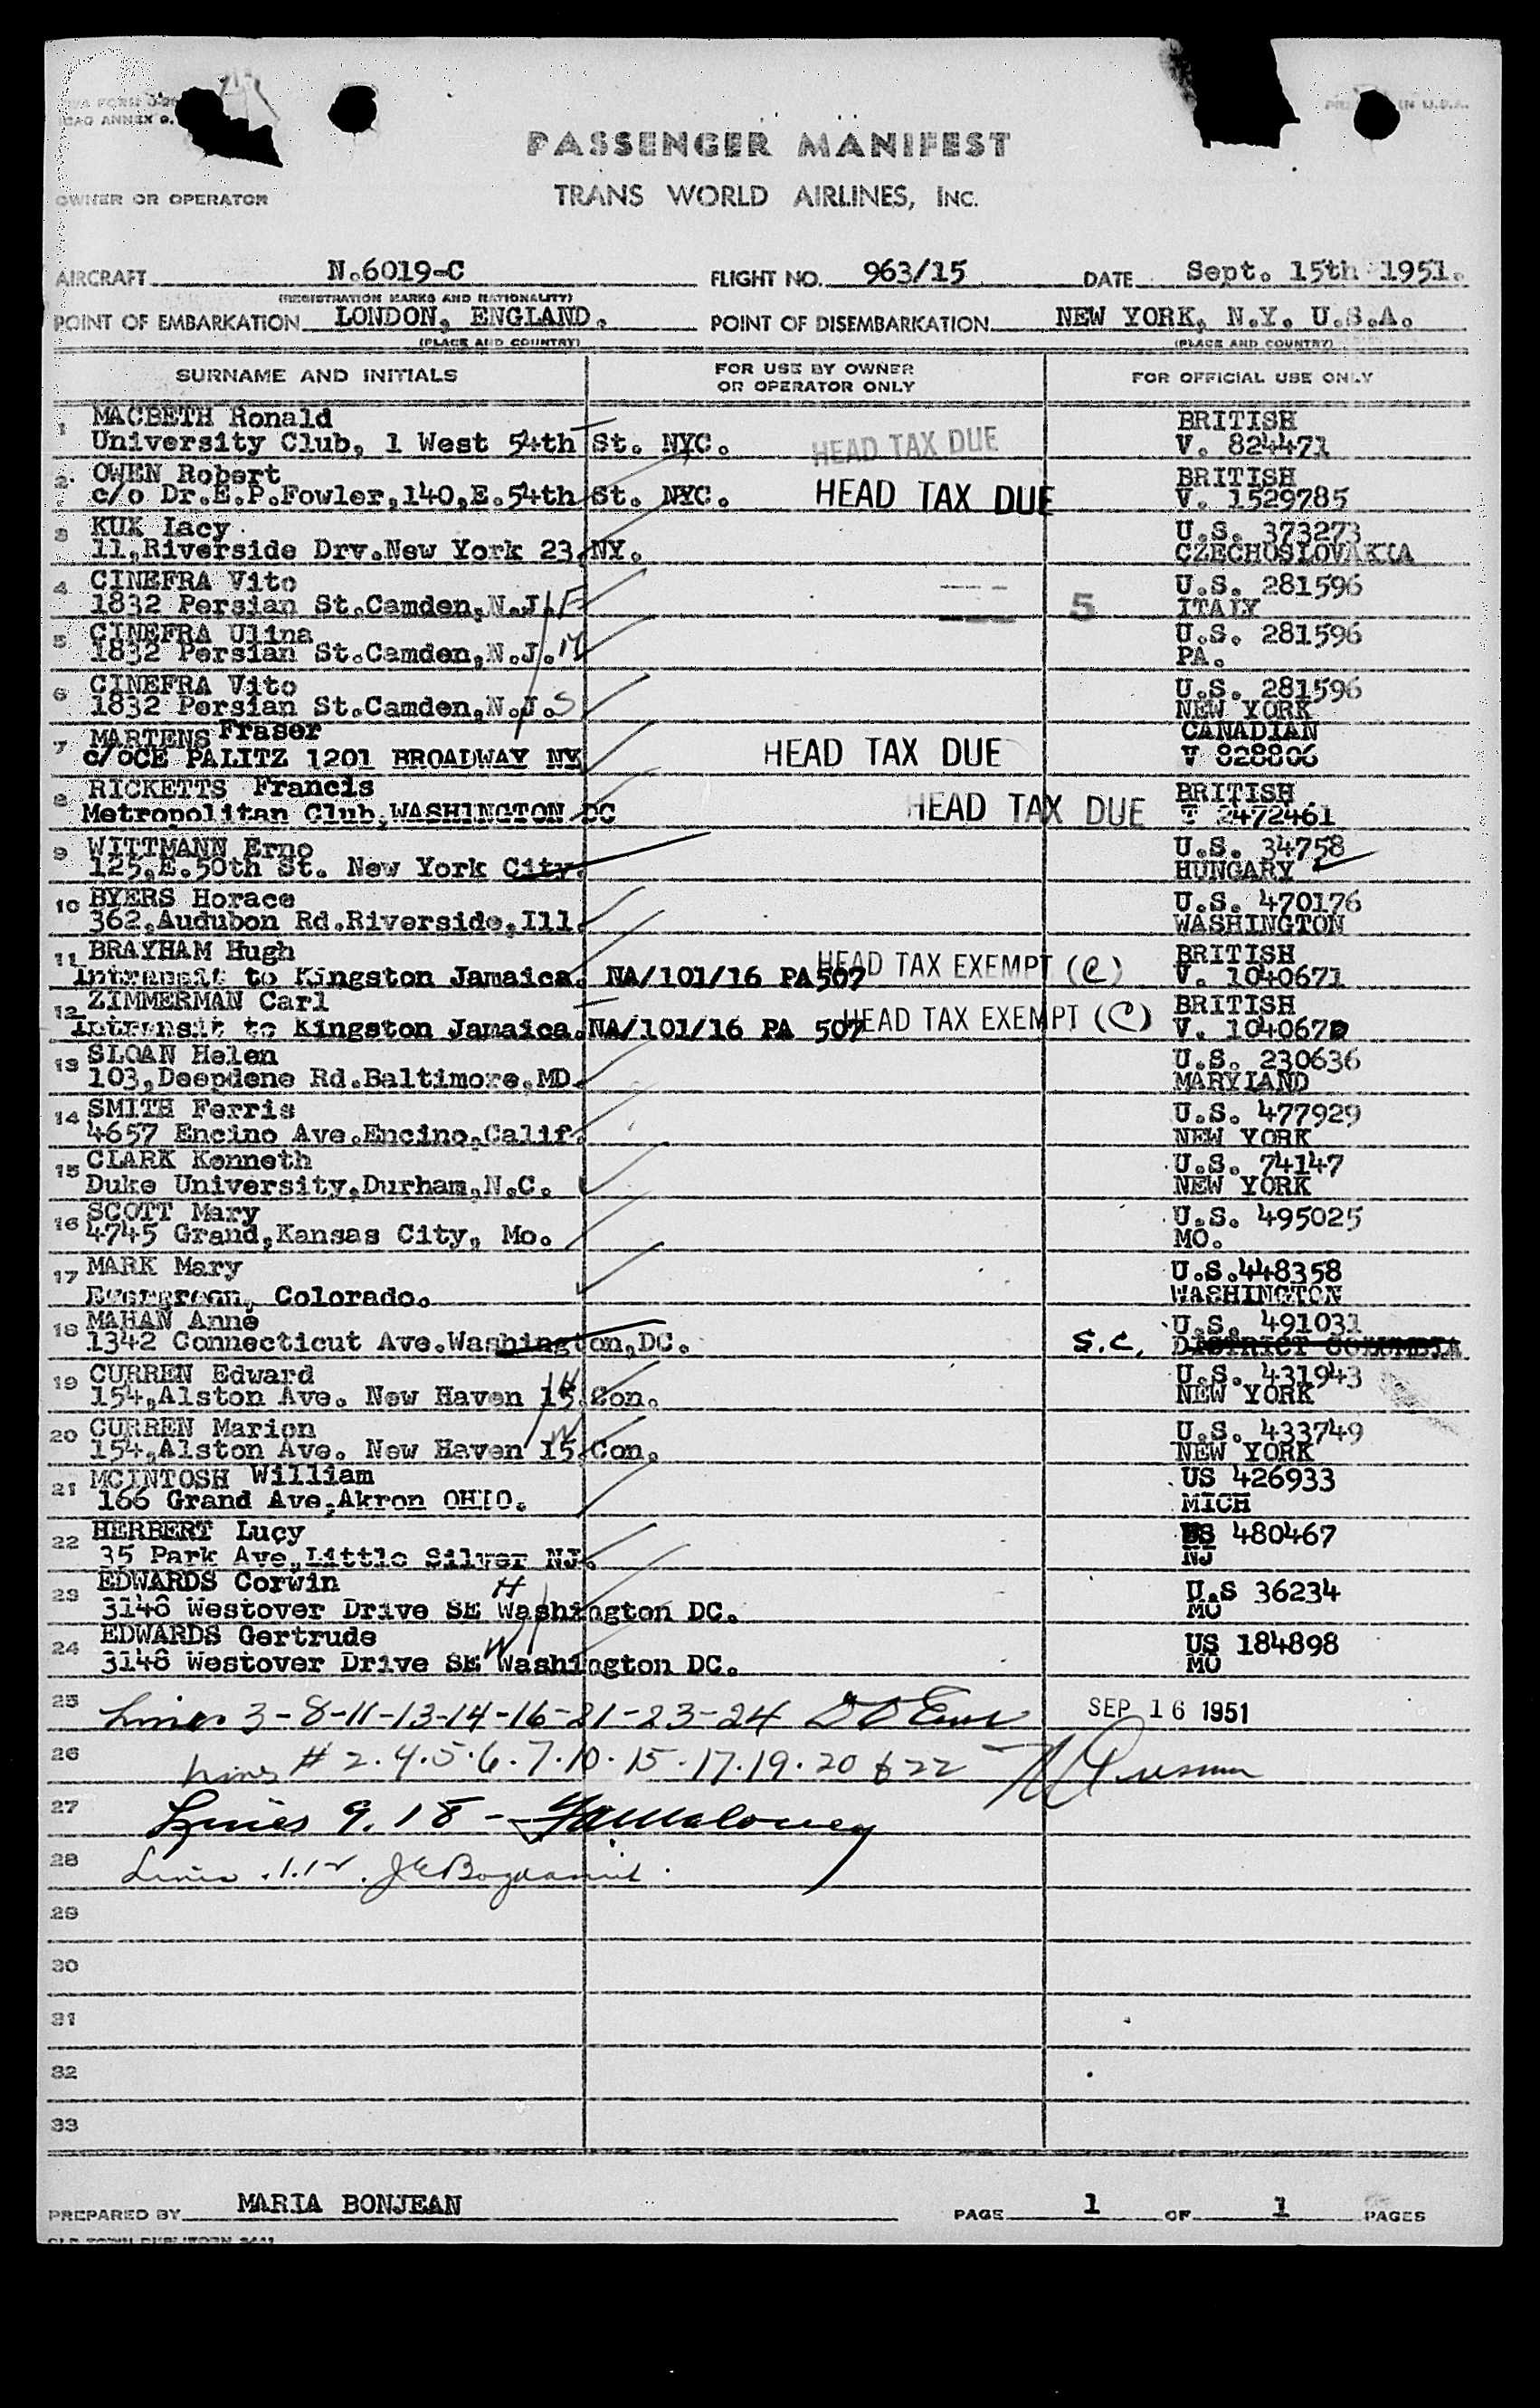 ICAO ANNEX 9.
PASSENGER MANIFEST
OWNER OR OPERATOR TRANS WORLD AIRLINES, INC.
AIRCRAFT N.6019-C FLIGHT NO. 963/15 DATE Sept. 15th 1951.
(REGISTRATION MARKS AND NATIONALITY)
POINT OF EMBARKATION LONDON, ENGLAND. POINT OF DISEMBARKATION NEW YORK, N.Y. U.S.A.
(PLACE AND COUNTRY) (PLACE AND COUNTRY)
SURNAME AND INITIALS FOR USE BY OWNER OR OPERATOR ONLY FOR OFFICIAL USE ONLY
1 MACBETH Ronald BRITISH
University Club, 1 West 54th St. NYC. HEAD TAX DUE V. 824471
2 OWEN Robert BRITISH
c/o Dr.E.P.Fowler,140,E.54th St. NYC. HEAD TAX DUE V. 1529785
3 KUK Lacy U.S. 373273
11,Riverside Drv.New York 23,NY. CZECHOSLOVAKIA
4 CINEFRA Vito U.S. 281596
1832 Persian St.Camden,N.J. F 5 ITALY
5 CINEFRA Ulina U.S. 281596
1832 Persian St.Camden,N.J. M PA.
6 CINEFRA Vito U.S. 281596
1832 Persian St.Camden,N.J. S NEW YORK
7 MARTENS Fraser CANADIAN
c/oCE PALITZ 1201 BROADWAY NY HEAD TAX DUE V 828806
8 RICKETTS Francis BRITISH
Metropolitan Club,WASHINGTON DC HEAD TAX DUE T 2472461
9 WITTMANN Erno U.S. 34758
125,E.50th St. New York City. HUNGARY
10 BYERS Horace U.S. 470176
362,Audubon Rd.Riverside,Ill. WASHINGTON
11 BRAYHAM Hugh BRITISH
Intransit to Kingston Jamaica. NA/101/16 PA507 HEAD TAX EXEMPT (C) V. 1040671
12 ZIMMERMAN Carl BRITISH
Intransit to Kingston Jamaica.NA/101/16 PA 507 HEAD TAX EXEMPT (C) V. 1040670
13 SLOAN Helen U.S. 230636
103,Deepdene Rd.Baltimore,MD. MARYLAND
14 SMITH Ferris U.S. 477929
4657 Encino Ave.Encino,Calif. NEW YORK
15 CLARK Kenneth U.S. 74147
Duke University,Durham,N.C. NEW YORK
16 SCOTT Mary U.S. 495025
4745 Grand,Kansas City, Mo. MO.
17 MARK Mary U.S.448358
Evergreen, Colorado. WASHINGTON
18 MAHAN Anne U.S. 491031
1342 Connecticut Ave.Washington,DC. S.C. DISTRICT COLUMBIA
19 CURREN Edward U.S. 431943
154,Alston Ave. New Haven 15,Con. H NEW YORK
20 CURREN Marion U.S. 433749
154,Alston Ave. New Haven 15,Con. W NEW YORK
21 MCINTOSH William US 426933
166 Grand Ave,Akron OHIO. MICH
22 HERBERT Lucy US 480467
35 Park Ave,Little Silver NJ. NJ
23 EDWARDS Corwin H U.S 36234
3148 Westover Drive SE Washington DC. MO
24 EDWARDS Gertrude US 184898
3148 Westover Drive SE W Washington DC. MO
25 Lines 3-8-11-13-14-16-21-23-24 SEP 16 1951
26 Lines # 2.4.5.6.7.10.15.17.19.20 & 22
27 Lines 9.18 -
28 Lines .1.12.
29
30
31
32
33
PREPARED BY MARIA BONJEAN PAGE 1 OF 1 PAGES